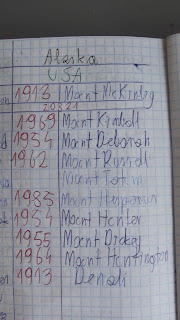 Alaska
USA
1913 Mount McKinley
20321
1969 Mount Kimball
1954 Mount Deborah
1962 Mount Russell
Mount Tom
1985 Mount
1954 Mount Hunter
1955 Mount Dickey
1964 Mount Huntington
1913 Denali